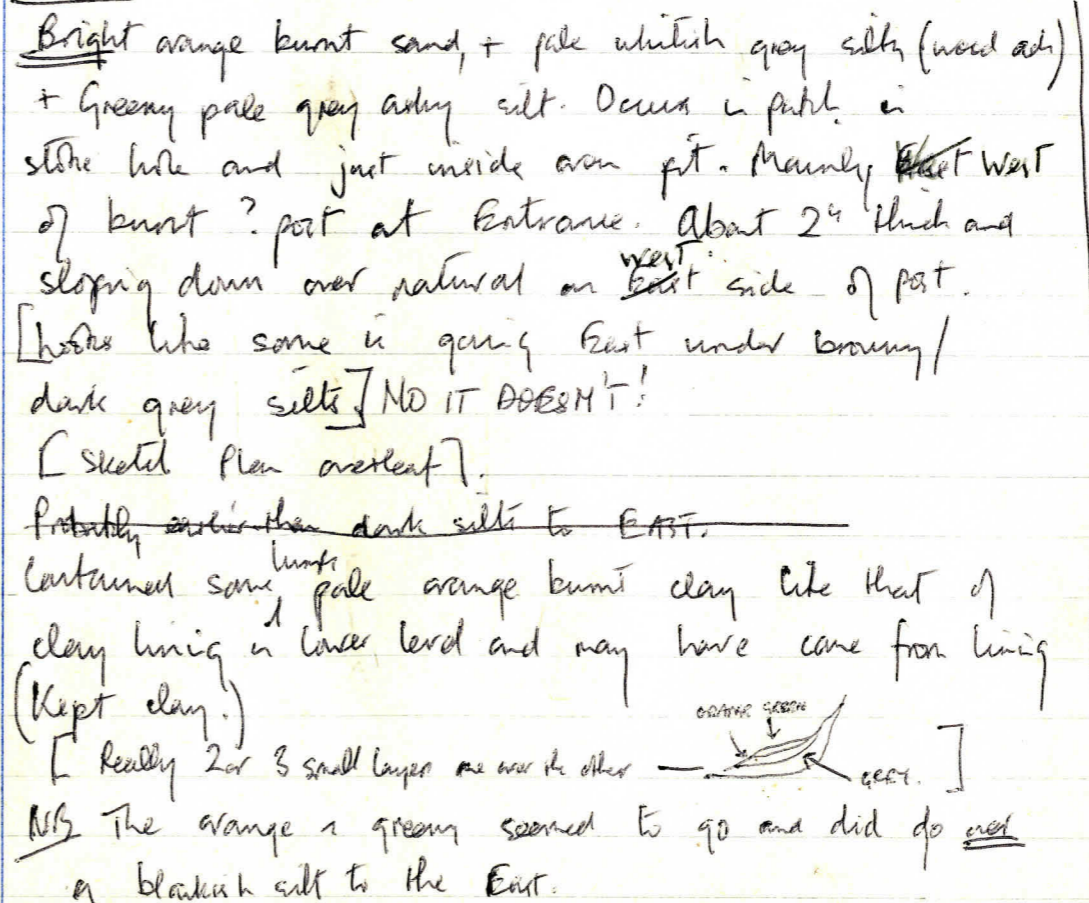 Bright orange burnt sand, + pale whitish grey silty (wood ash)
+ Greeny pale grey ashy silt. Occurs in patch in
stoke hole and just inside oven pit. Mainly East West
of burnt ? post at Entrance. About 2" thick and
sloping down over natural on East west side of post.
[Looks like some is going East under browny/
dark grey silts] NO IT DOESN'T!
[Sketch Plan overleaf].
Probably earlier than dark silts to EAST.
Contained some lumps pale orange burnt clay like that of
clay lining in lower level and may have come from lining
(Kept clay.)
ORANGE GREEN
[Really 2 or 3 small layers one over the other
GREY. ]
NB The orange + greeny seemed to go and did do over
a blackish silt to the East.